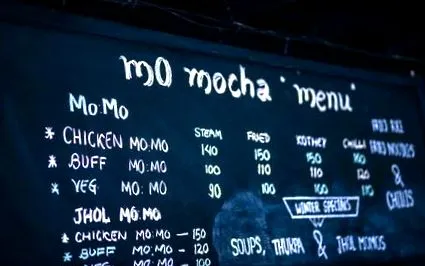 mo mocha "menu"
Mo:Mo
STEAM FRIED KOTHEY CHILLI
* CHICKEN MO:MO 140 150 150 160
* BUFF MO:MO 100 110 110 120
* VEG MO:MO 90 100 100
JHOL MO:MO
* CHICKEN MO:MO — 150
* BUFF MO:MO — 120
VEG MO:MO — 100
FRIED RICE
FRIED NOODLES
&
WINTER SPECIALS
SOUPS, THUKPA & JHOL MOMOS